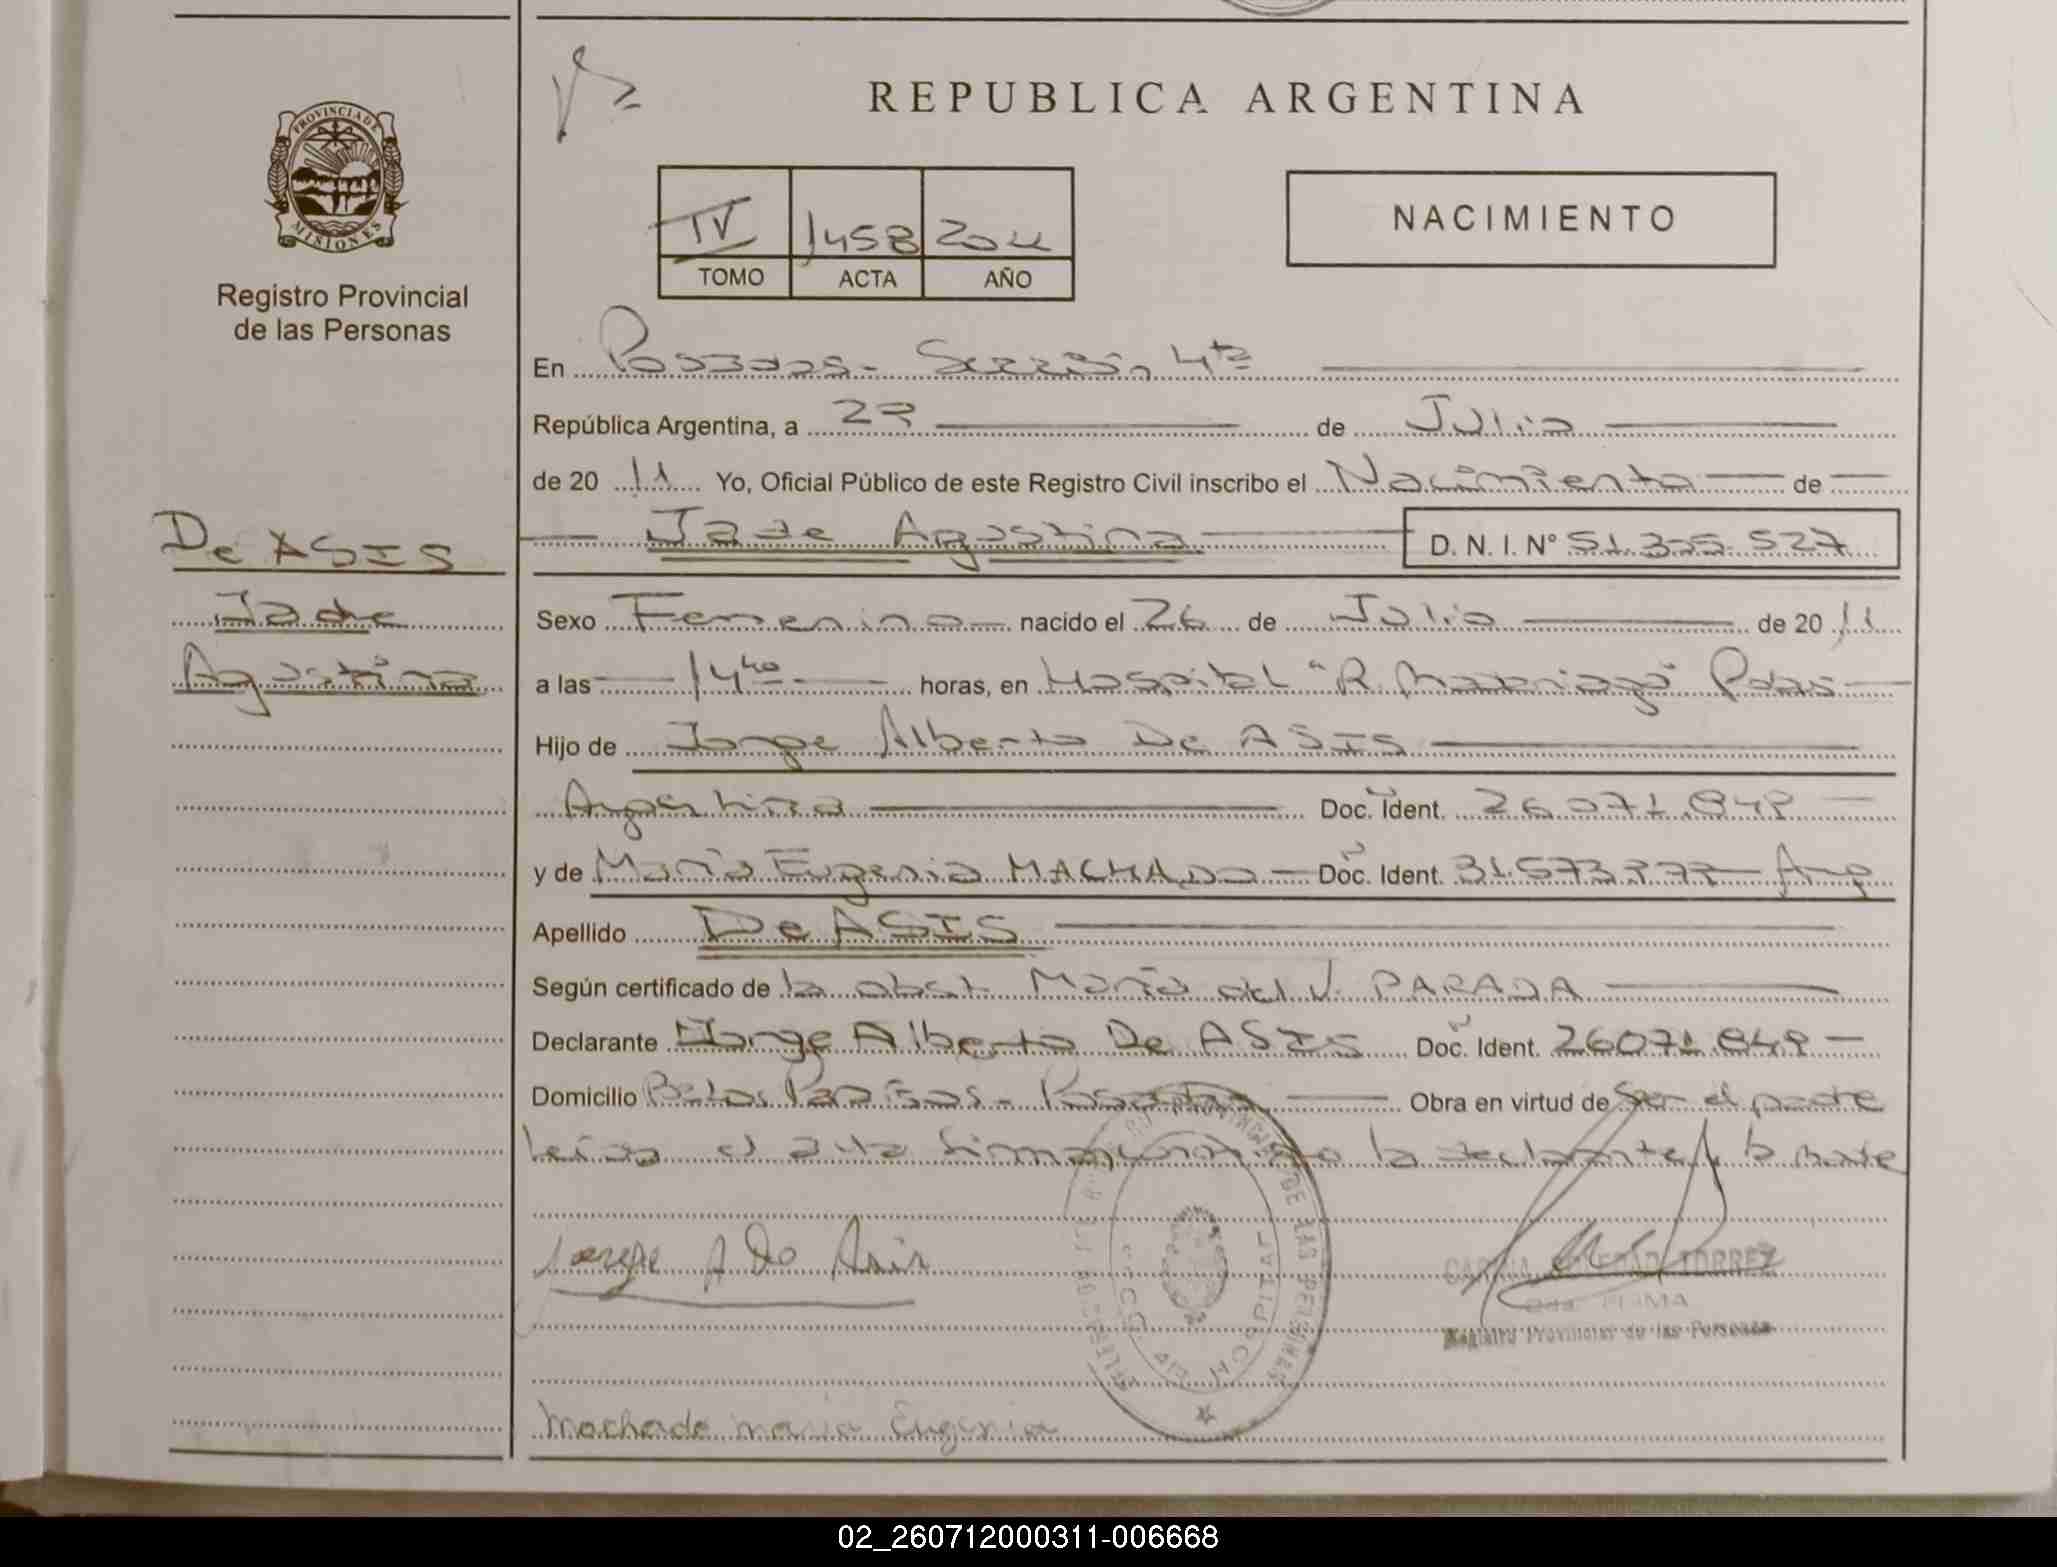 REPUBLICA ARGENTINA
PROVINCIA DE MISIONES
Registro Provincial
de las Personas
IV 1458 2011
TOMO ACTA AÑO
NACIMIENTO
En Posadas - Sección 4ta
República Argentina, a 27 de Julio
de 20 11 Yo, Oficial Público de este Registro Civil inscribo el Nacimiento de
Jade Agostina D. N. I. Nº 51.355.527
De ASIS
Jade
Agostina
Sexo Femenino nacido el 26 de Julio de 20 11
a las 14 40 horas, en Hospital "R. Madariaga" Pdas
Hijo de Jorge Alberto De ASIS
Argentina Doc. Ident. 26.071.849
y de María Eugenia MACHADO Doc. Ident. 31.573.977 Arg
Apellido De ASIS
Según certificado de la obst. María del V. PARADA
Declarante Jorge Alberto De ASIS Doc. Ident. 26071.849
Domicilio Posadas Obra en virtud de Ser el padre
leída el acta la declarante y la madre
Jorge A De Asis
CARINA SOLEDAD TORREZ
Registro Provincial de las Personas
Machado maria Eugenia
02_260712000311-006668